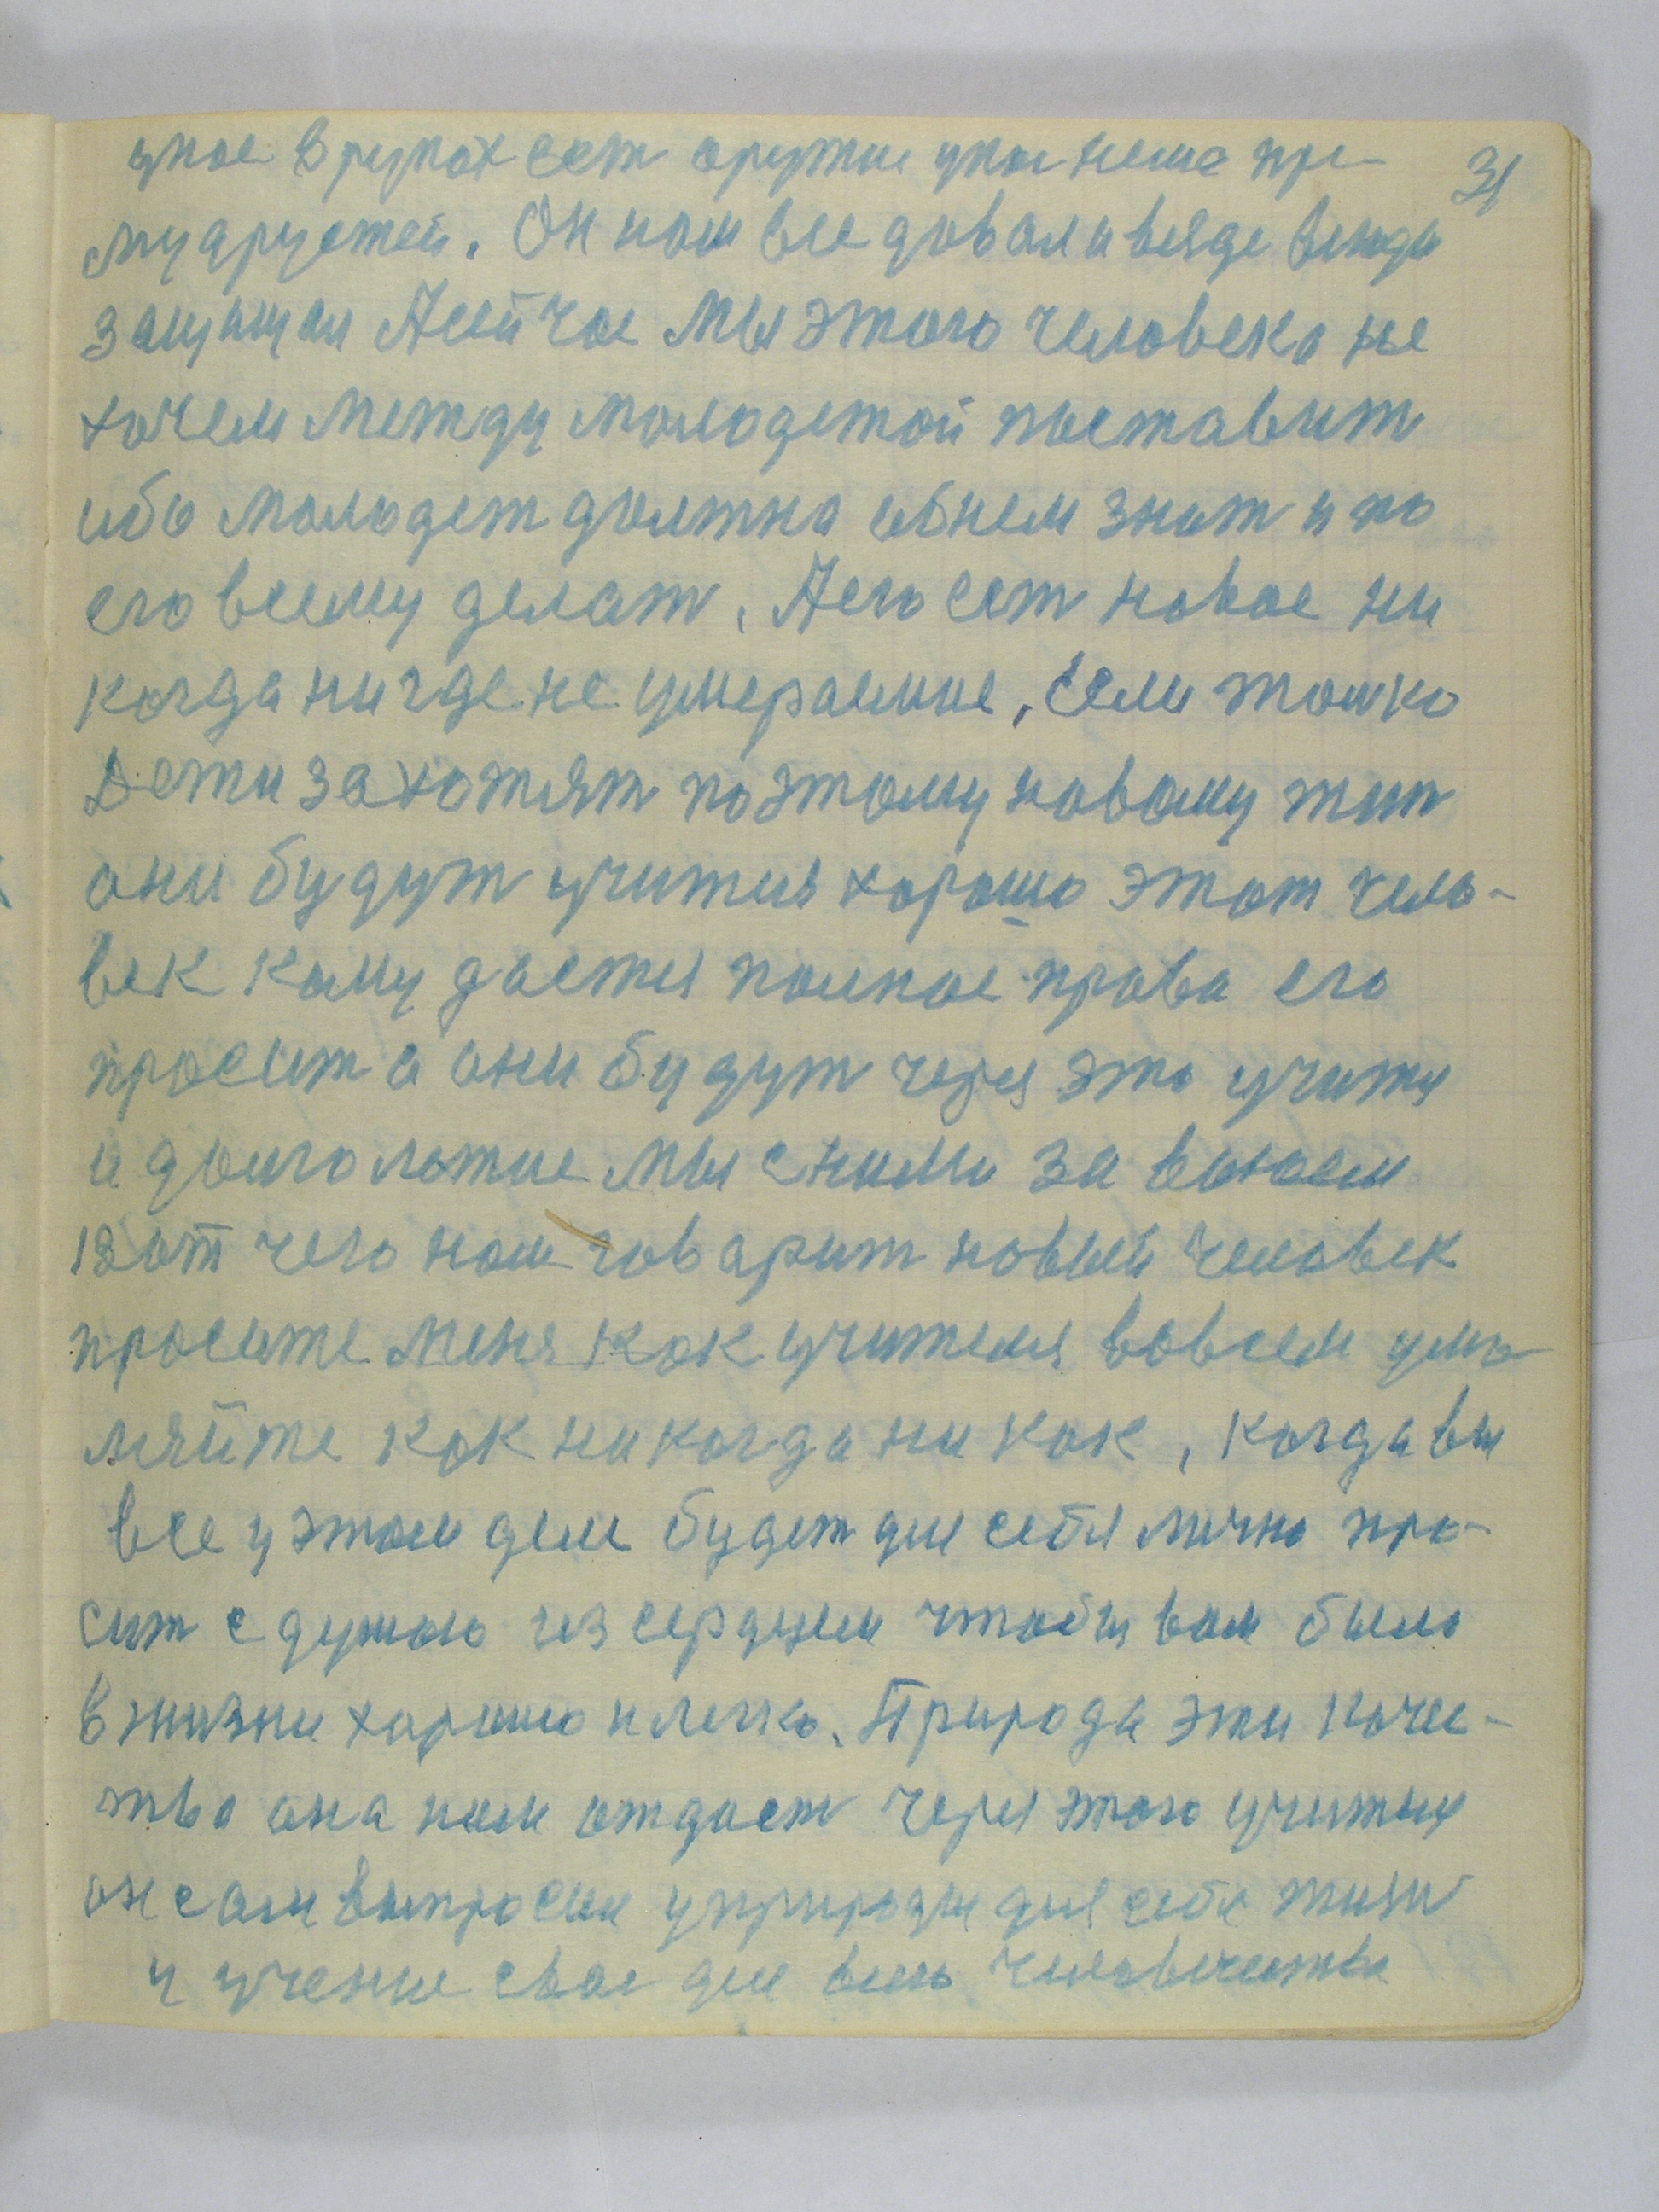 31
умое в руках ест оружие
мудрустей. Он нам все давал и везде всюду
защищал Асейчас мы этого человека не
хочем между молодежой поставит
ибо молодеж должна обнем знат и по
его всему делат. Аего ест новое ни
когда нигде не умераемое, Если толко
Дети захотят поэтому новому жит
они будут учится хорошо этот чело-
век кому дается полное права его
просит а они будут через это учится
и долголетие мы сними завоюем
Вот чего нам говарит новый человек
просите меня как учителя вовсем умо
ляйте как никогда никак, когда вы
все уэтом деле будет для себя лично про-
сит с душою из сердцем чтобы вам было
в жизни хорошо и легко. Природа эти качес-
тва она нам отдаст через этого
он сам выпросил уприроды для себя жизн
и учение свое для всего человечества